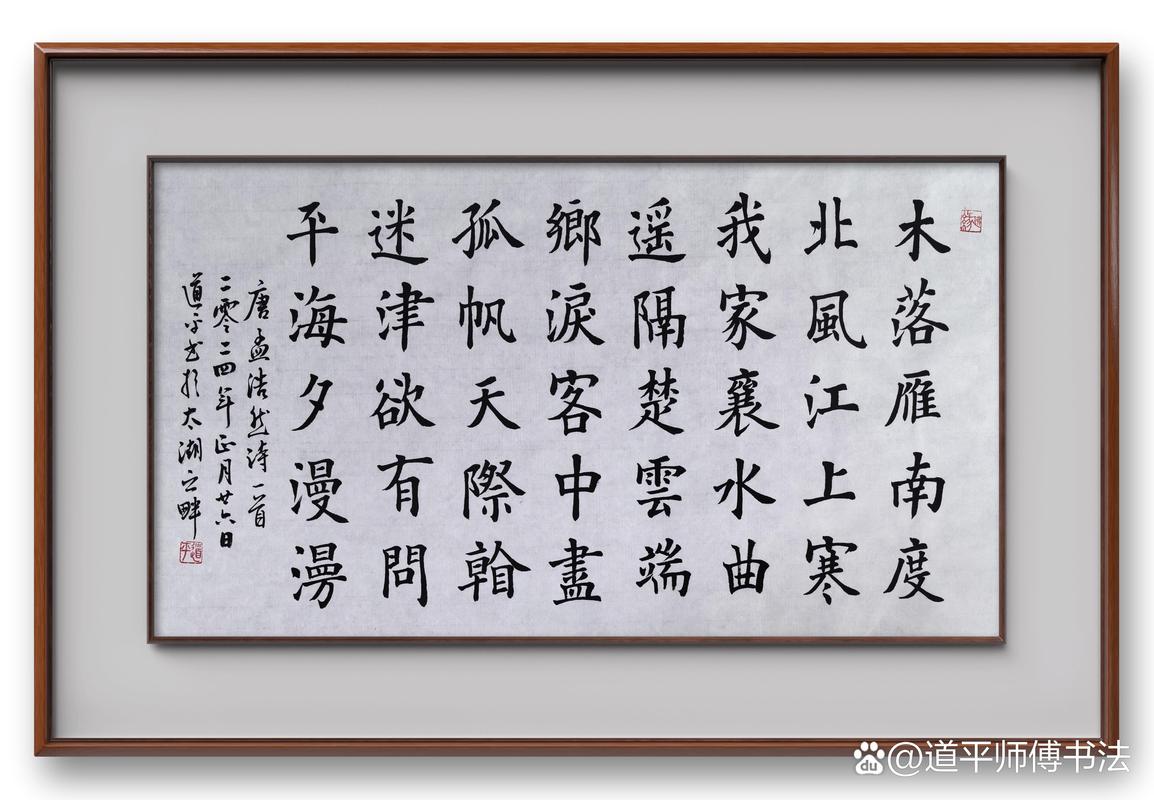 木落雁南度
北風江上寒
我家襄水曲
遥隔楚雲端
鄉淚客中盡
孤帆天際翰
迷津欲有問
平海夕漫漫
唐孟浩然詩一首
二零二四年正月廿六日
道平书於太湖之畔
道平
@道平师傅书法